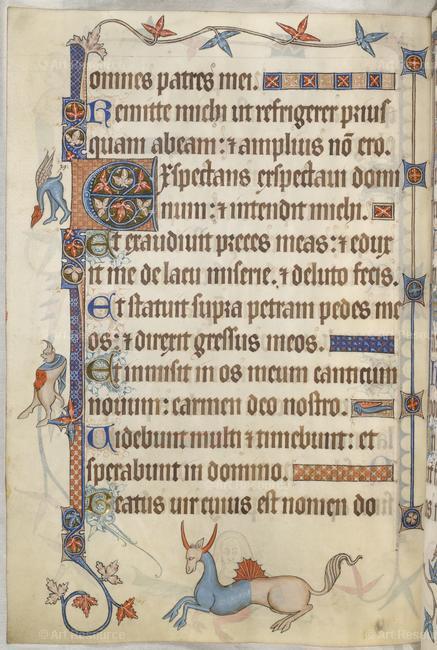 omnes patres mei.
Remitte michi ut refrigerer prius
quam abeam: ⁊ amplius nō ero.
Exspectans exspectaui domi
num: ⁊ intendit michi.
Et exaudiuit preces meas: ⁊ edux
it me de lacu miserie. ⁊ de luto fecis.
Et statuit supra petram pedes me
os: ⁊ direxit gressus meos.
Et inmisit in os meum canticum
nouum: carmen deo nostro.
Uidebunt multi ⁊ timebunt: et
sperabunt in domino.
Beatus uir cuius est nomen do
© Art Resource
© Art Resource